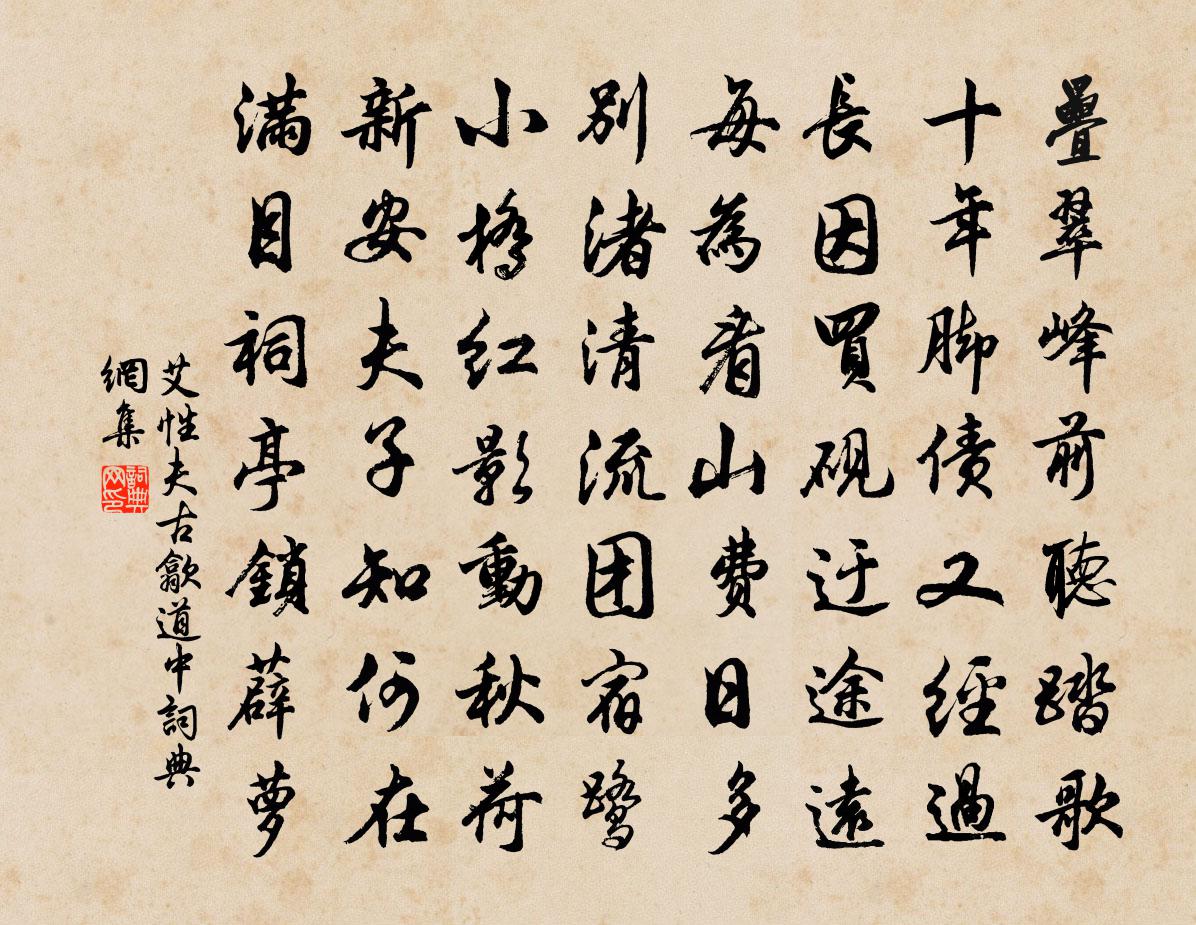 疊翠峰前聽踏歌
十年脚债又經過
長因買硯迂途遠
每為看山費日多
別渚清流团宿鷺
小橋红影動秋荷
新安夫子知何在
满目祠亭鎖薜萝
艾性夫古歙道中詞典
網集
詞典网印